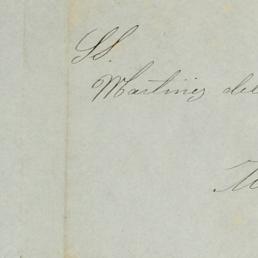 SS.
Martinez del